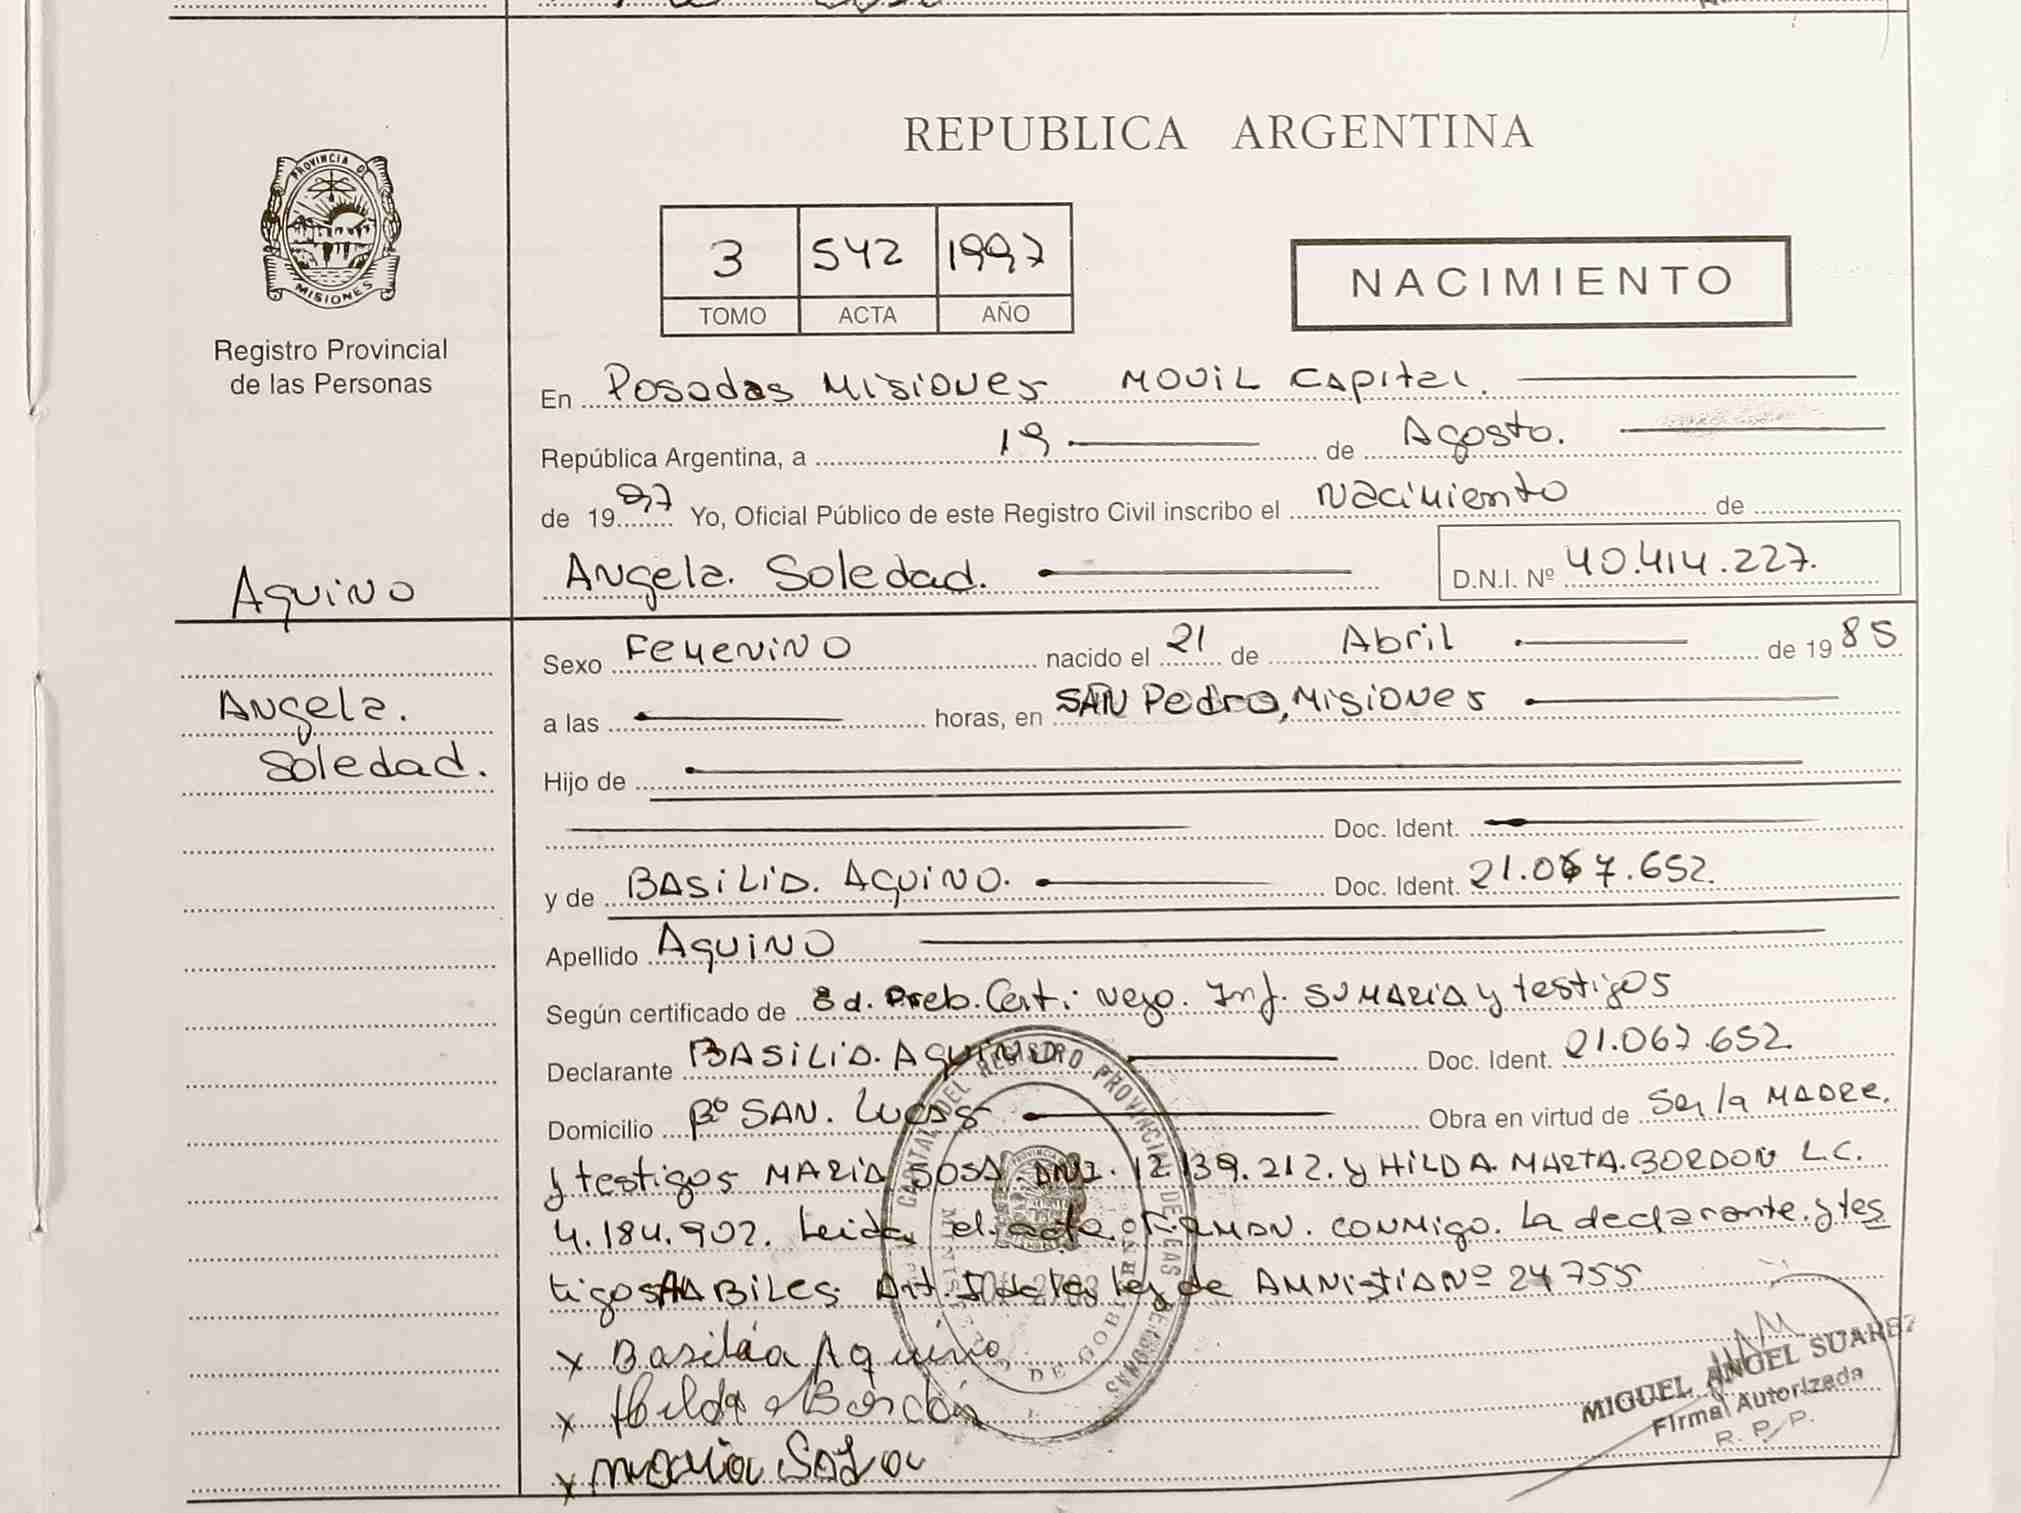 REPUBLICA ARGENTINA
PROVINCIA DE
MISIONES
Registro Provincial
de las Personas
3 542 1997
TOMO ACTA AÑO
NACIMIENTO
En Posadas Misiones Movil Capital.
República Argentina, a 19 de Agosto.
de 1997 Yo, Oficial Público de este Registro Civil inscribo el Nacimiento de
Angela. Soledad. D.N.I. Nº 40.414.227.
Aquino
Angela.
Soledad.
Sexo Femenino nacido el 21 de Abril de 1985
a las horas, en SAN Pedro, Misiones
Hijo de
Doc. Ident.
y de BASILIA. AQUINO. Doc. Ident. 21.067.652.
Apellido AQUINO
Según certificado de Ed. Preb. Certi. Nego. Inf. SUMARIA y testigos
Declarante BASILIA. AQUINO Doc. Ident. 21.067.652.
Domicilio Bº SAN. Lucas Obra en virtud de Ser la MADRE.
y testigos MARIA SOSA DNI. 12.139.212. y HILDA. MARTA. BORDON L.C.
4.184.902. Leida el acta FIRMAN. CONMIGO. La declarante. y tes
tigos HABILES. Art. de la Ley de AMNISTIA Nº 24755
x Basilia Aquino
x Hilda M Bordón
x Maria Sosa
CAPITAL DEL REGISTRO PROVINCIAL DE LAS PERSONAS
DE GOBIERNO
MIGUEL ANGEL SUAREZ
Firma Autorizada
R. P. P.